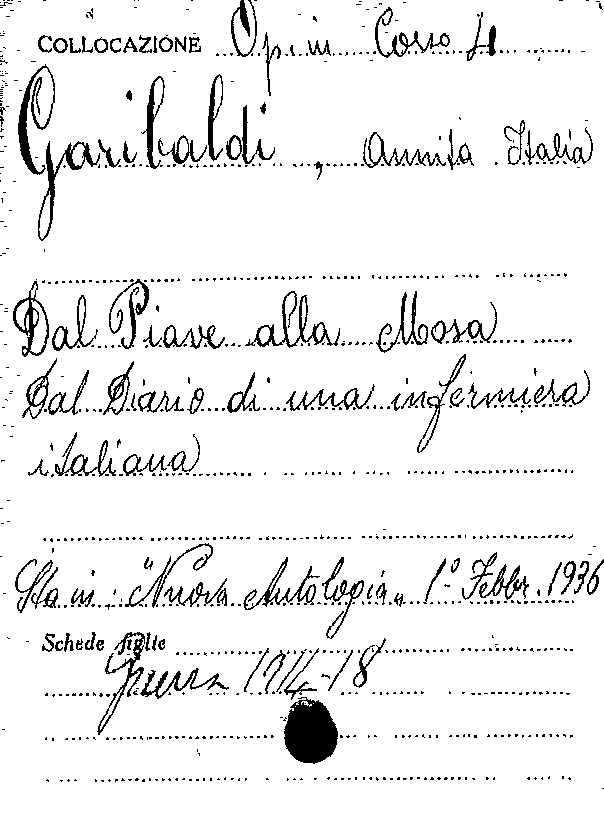 COLLOCAZIONE Op in Corso 4
Garibaldi, Annita Italia
Dal Piave alla Mosa
Dal Diario di una infermiera
italiana
Sta in: "Nuova Antologia„ 1° Febbr. 1936
Schede figlie
Guerra 1914-18